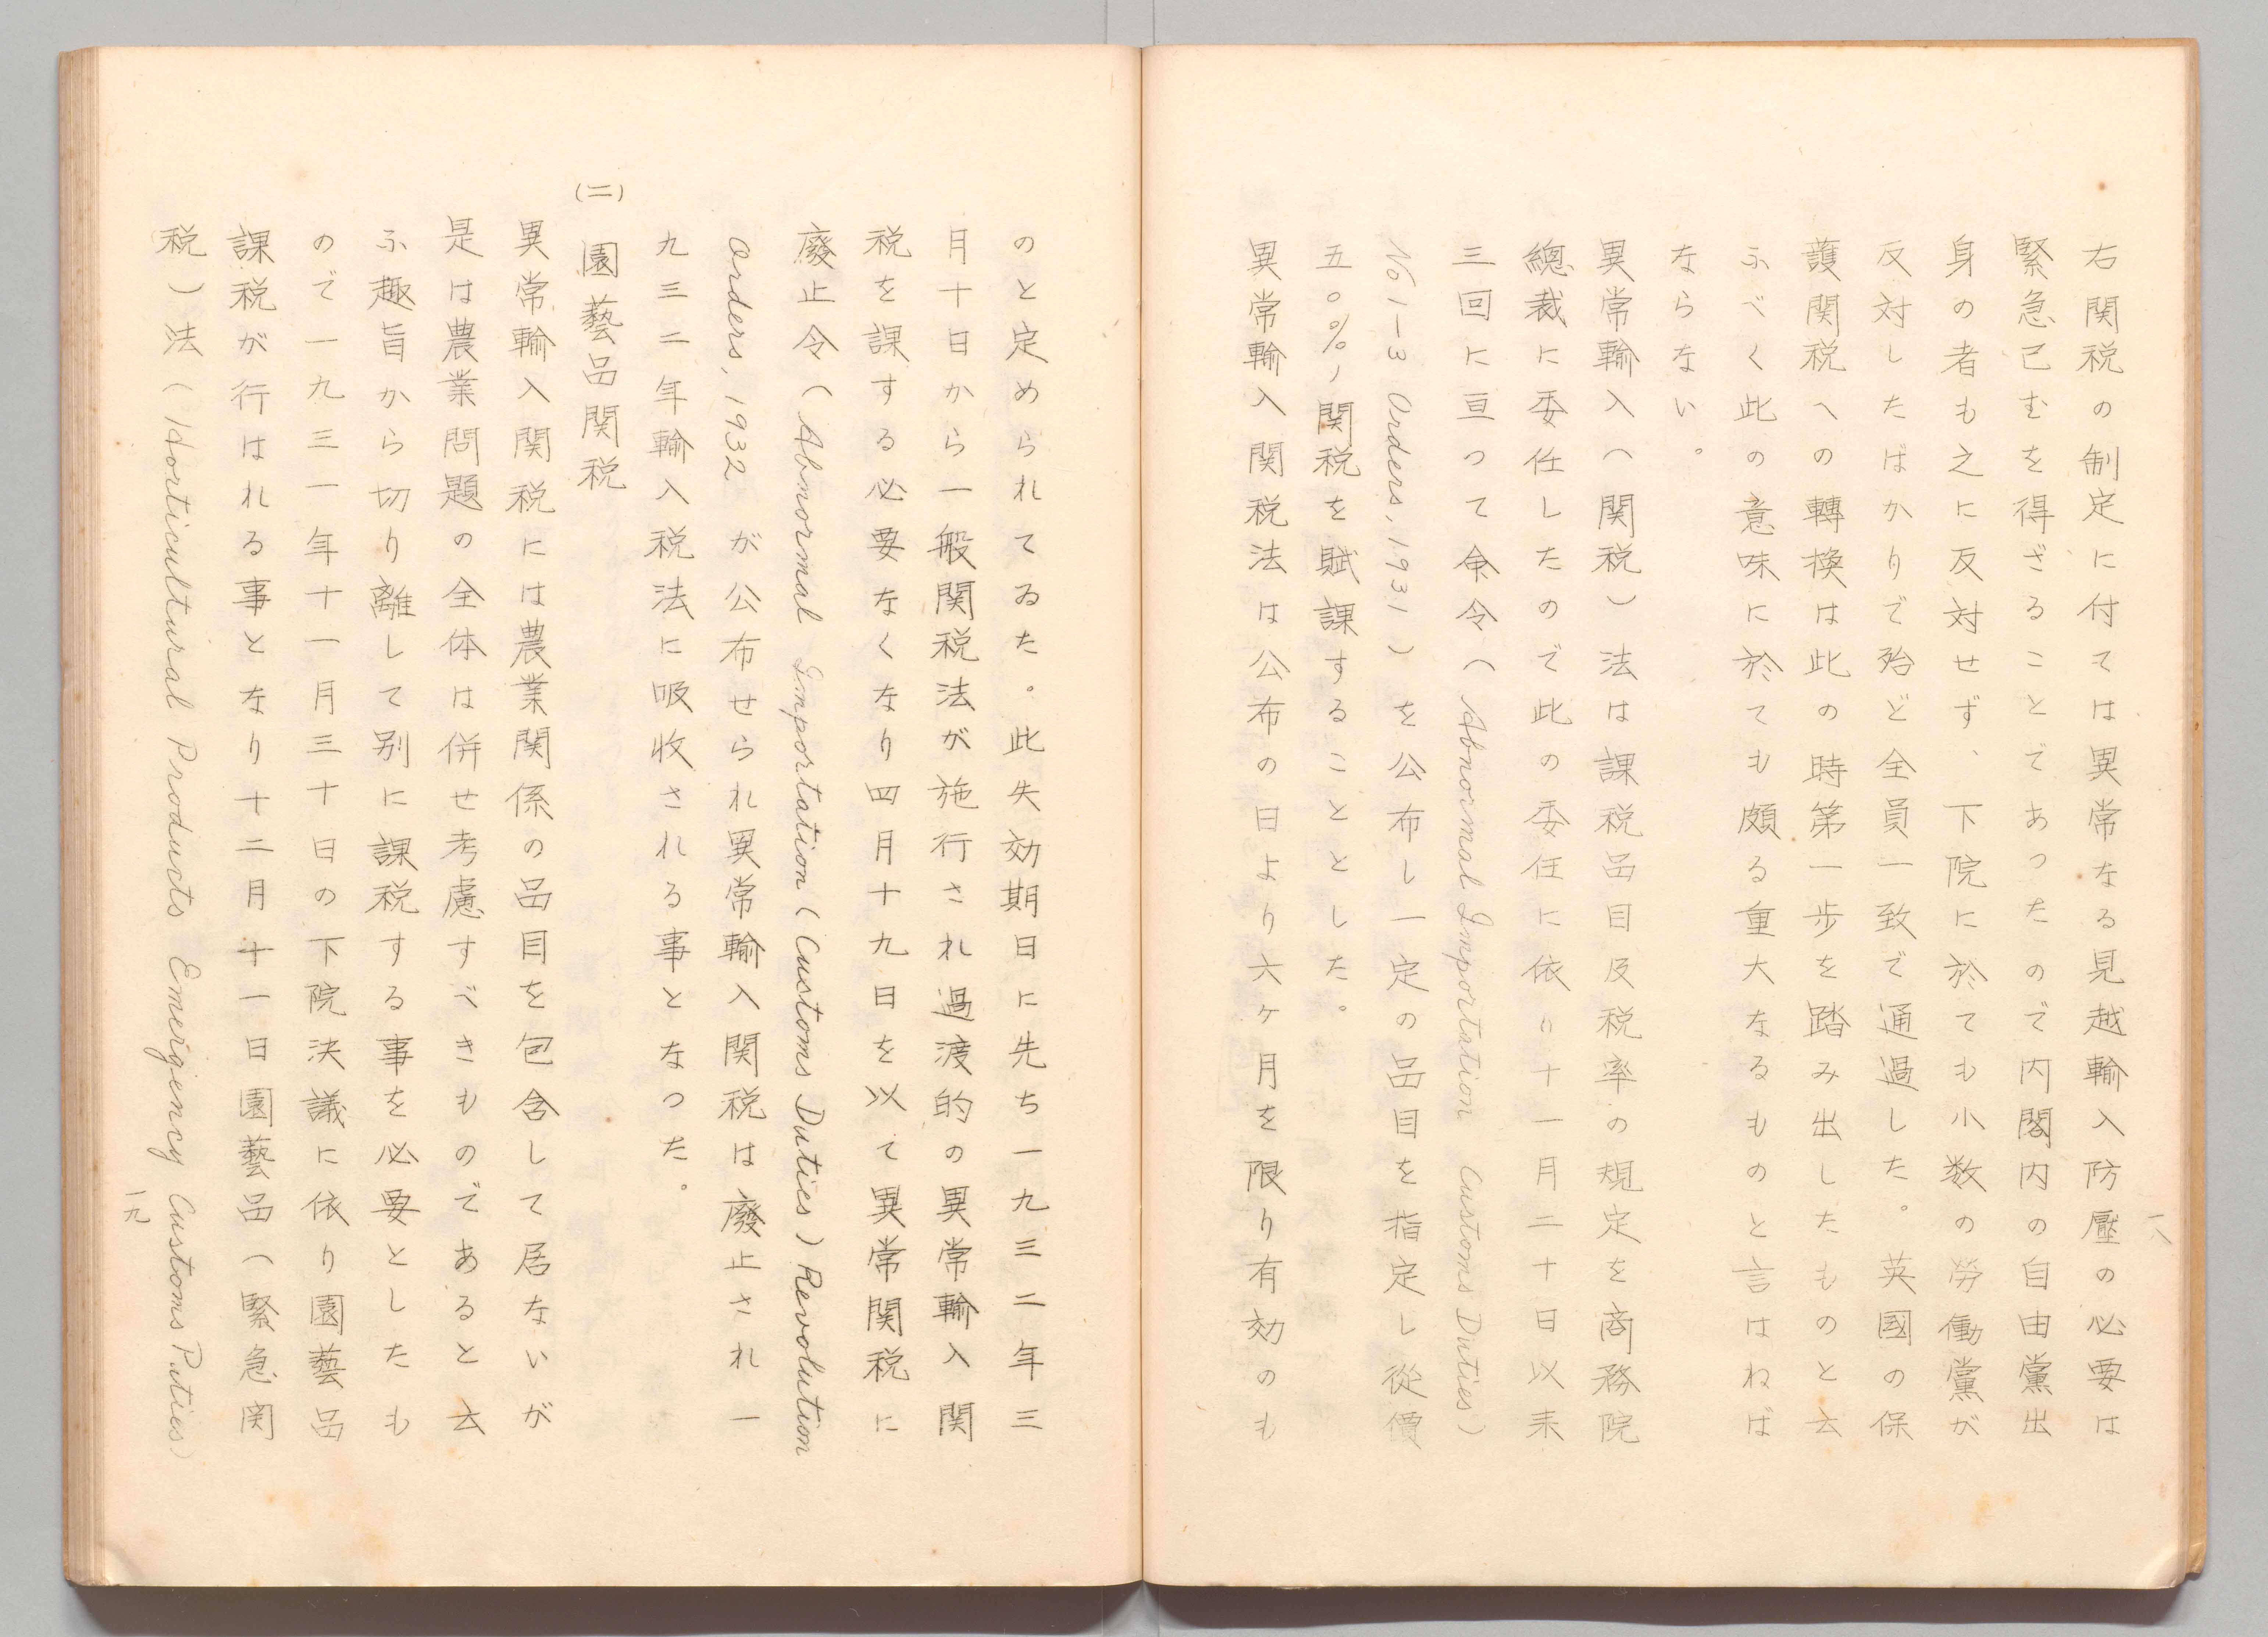 右関税の制定に付ては異常なる見越輸入防壓の必要は
緊急已むを得ざることであつたので内閣内の自由黨出
身の者も之に反対せず、下院に於ても小数の勞働黨が
反対したばかりで殆ど全員一致で通過した。英國の保
護関税への轉換は此の時第一歩を踏み出したものと云
ふべく此の意味に於ても頗る重大なるものと言はねば
ならない。
異常輸入(関税)法は課税品目及税率の規定を商務院
總裁に委任したので此の委任に依り十一月二十日以来
三回に亘つて命令(Abnormal Importation Customs Duties)
No 1—3 Orders, 1931)を公布し一定の品目を指定し從價
五〇%ノ関税を賦課することとした。
異常輸入関税法は公布の日より六ケ月を限り有効のも
一八
のと定められてゐた。此失効期日に先ち一九三二年三
月十日から一般関税法が施行され過渡的の異常輸入関
税を課する必要なくなり四月十九日を以て異常関税に
廢止令(Abnormal Importation (Customs Duties) Revolution
Orders, 1932 が公布せられ異常輸入関税は廢止され一
九三二年輸入税法に吸收される事となつた。
(二)園藝品関税
異常輸入関税には農業関係の品目を包含して居ないが
是は農業問題の全体は併せ考慮すべきものであると云
ふ趣旨から切り離して別に課税する事を必要としたも
ので一九三一年十一月三十日の下院決議に依り園藝品
課税が行はれる事となり十二月十一日園藝品(緊急関
税)法(Horticultural Products Emergency Customs Duties)
一九